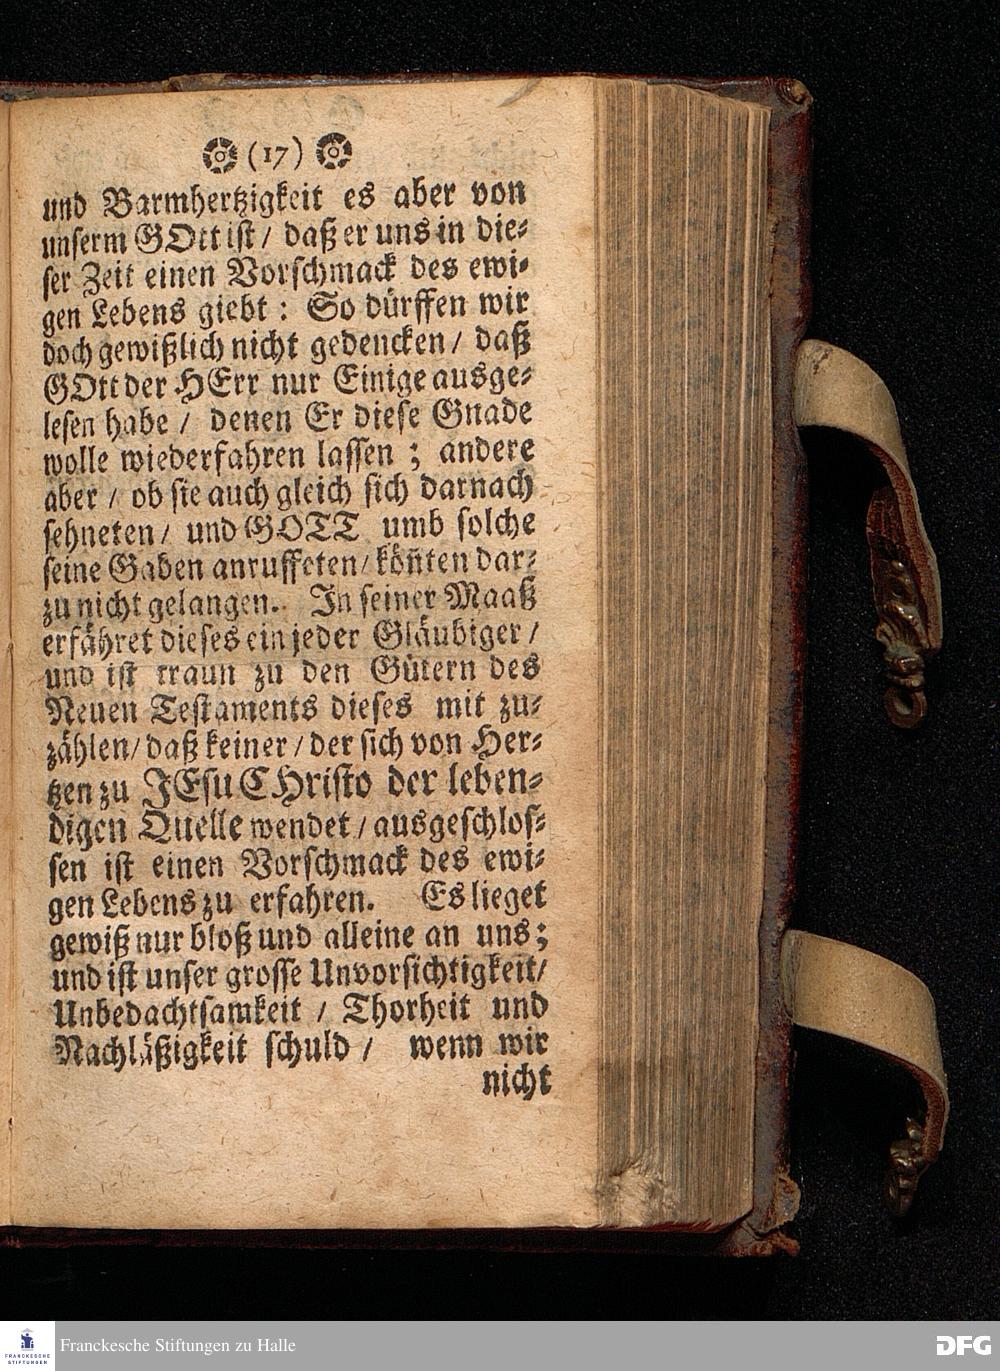 (17)
und Barmhertzigkeit es aber von
unserm GOtt ist / daß er uns in die-
ser Zeit einen Vorschmack des ewi-
gen Lebens giebt : So dürffen wir
doch gewißlich nicht gedencken / daß
GOtt der HErr nur Einige ausge-
lesen habe / denen Er diese Gnade
wolle wiederfahren lassen ; andere
aber / ob sie auch gleich sich darnach
sehneten / und GOTT umb solche
seine Gaben anruffeten / köñten dar-
zu nicht gelangen. In seiner Maaß
erfähret dieses ein jeder Gläubiger /
und ist traun zu den Gütern des
Neuen Testaments dieses mit zu-
zählen / daß keiner / der sich von Her-
tzen zu JEsu CHristo der leben-
digen Quelle wendet / ausgeschlos-
sen ist einen Vorschmack des ewi-
gen Lebens zu erfahren. Es lieget
gewiß nur bloß und alleine an uns ;
und ist unser grosse Unvorsichtigkeit /
Unbedachtsamkeit / Thorheit und
Nachläßigkeit schuld / wenn wir
nicht
FRANCKESCHE STIFTUNGEN
Franckesche Stiftungen zu Halle
DFG